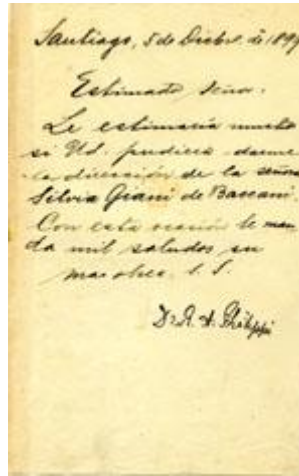 Santiago, 5 de Dicbre. de 189
Estimado Señor.
Le estimaria mucho
si Ud. pudiera darme
la direccion de la señora
Silvia Giani de Baccani.
Con esta ocasion le man
da mil saludos su
S. S.
Dr. R. A. Philippi